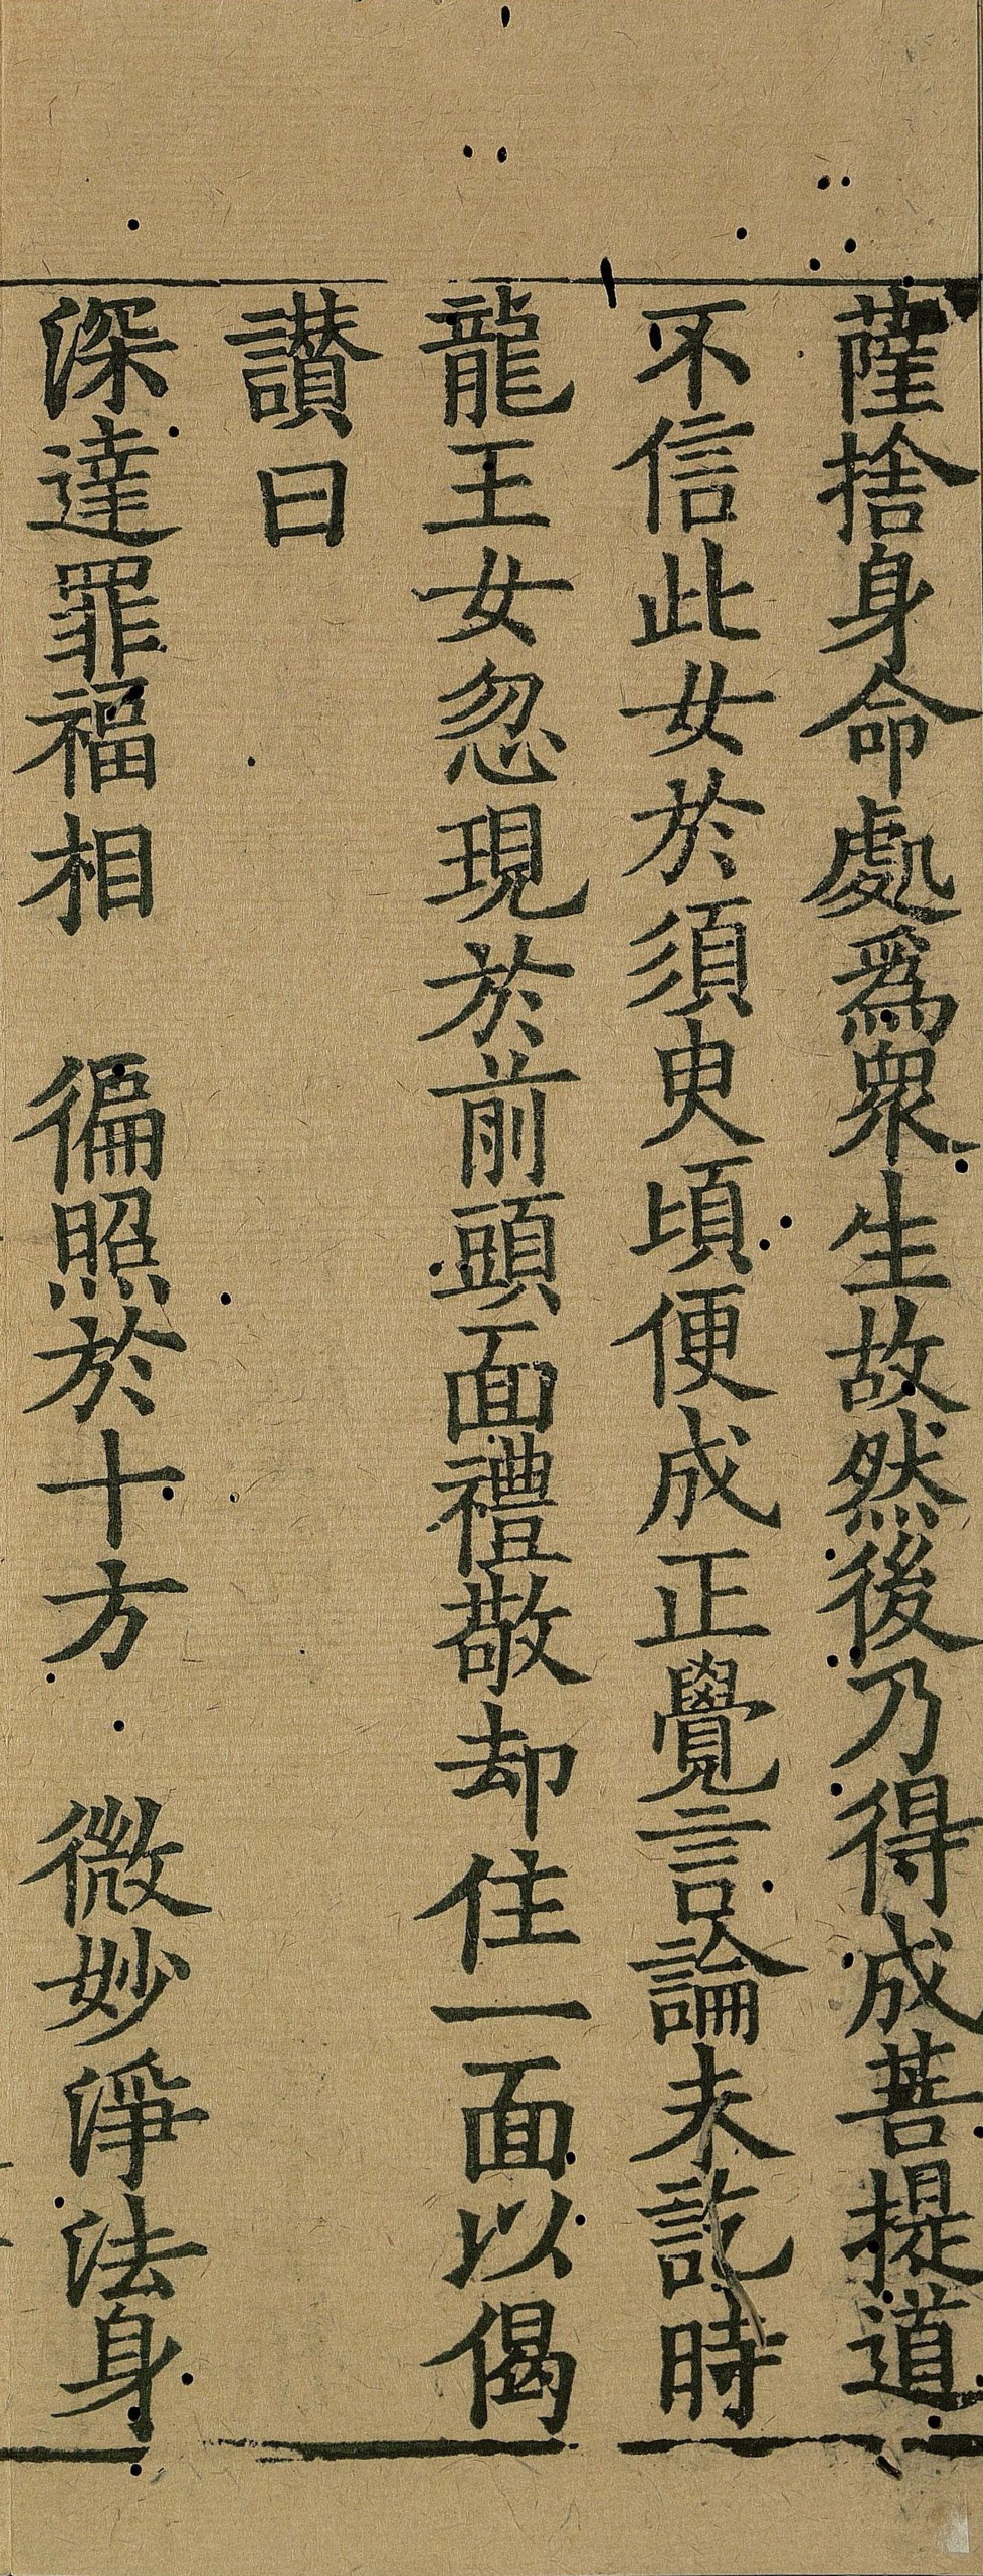 薩捨身命處爲衆生故然後乃得成菩提道
不信此女於須臾頃便成正覺言論未訖時
龍王女忽現於前頭面禮敬却住一面以偈
讃曰
深達罪福相　徧照於十方　微妙淨法身